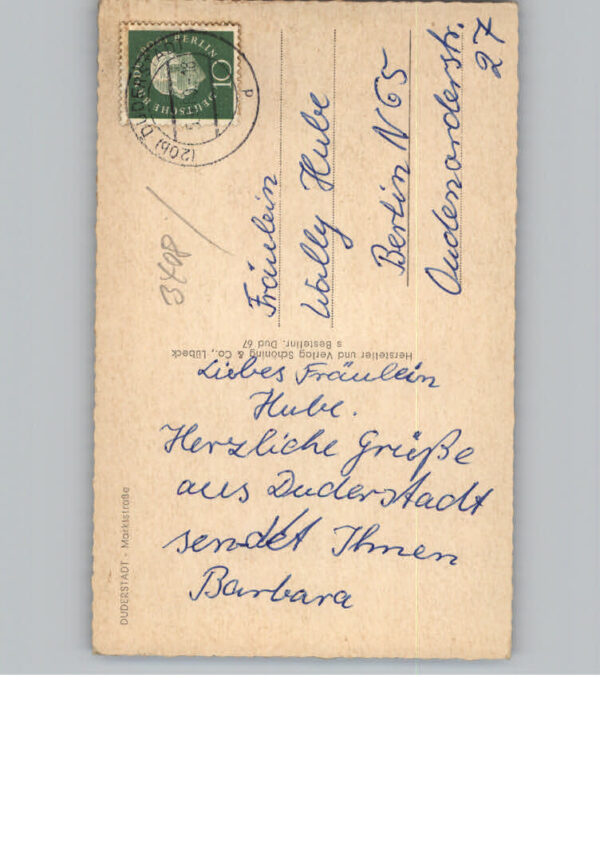 DEUTSCHE BUNDESPOST BERLIN
10
(20b) DUDERSTADT
P
3408
Fräulein
Wally Hube
Berlin N 65
Oudenarderstr.
27
Hersteller und Verlag Schöning & Co., Lübeck
s Bestellnr. Dud 67
Liebes Fräulein
Hube.
Herzliche Grüße
aus Duderstadt
sendet Ihnen
Barbara
DUDERSTADT - Marktstraße